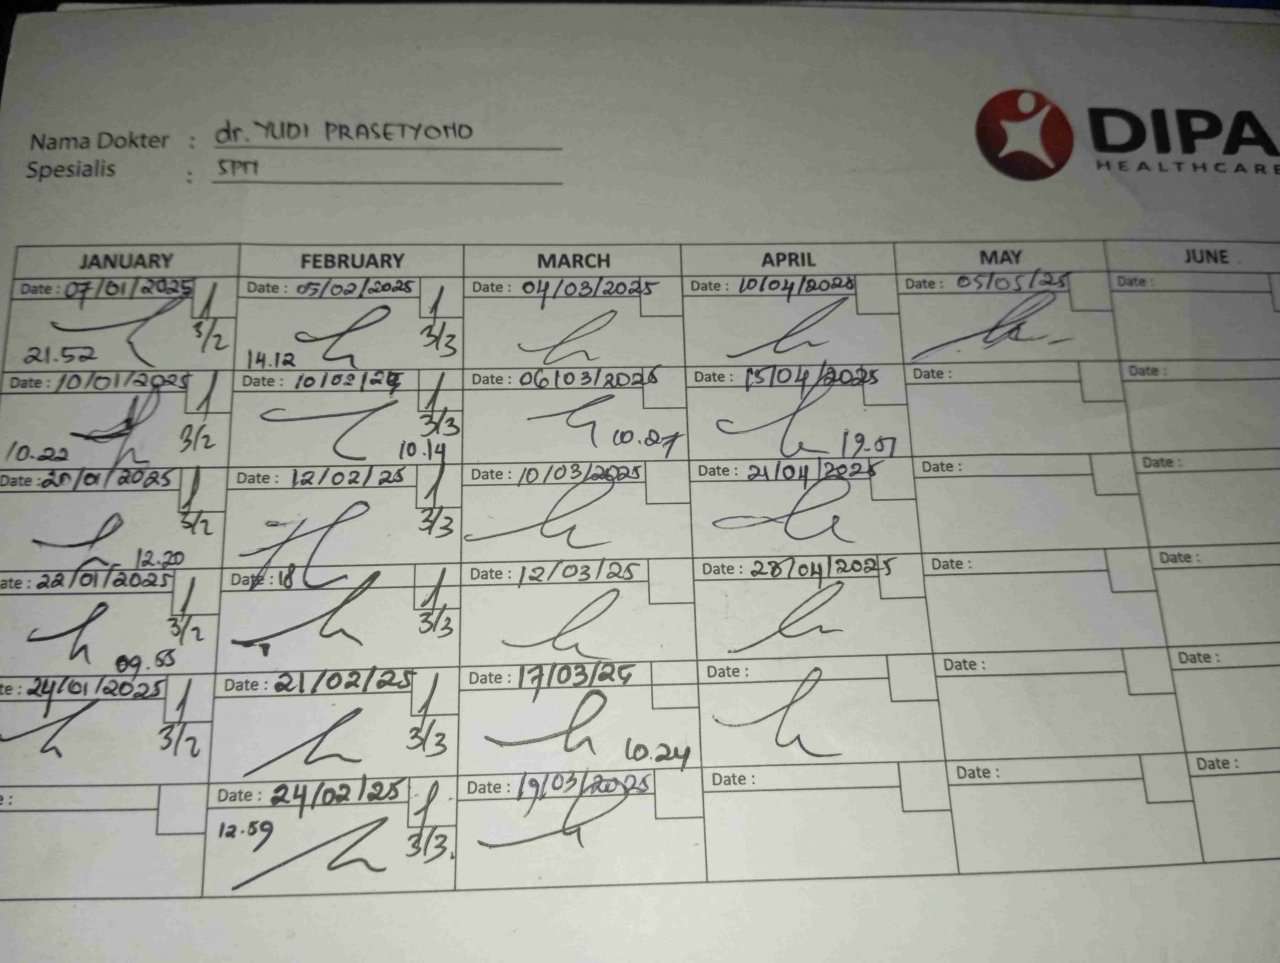 Nama Dokter : dr. YUDI PRASETYOHO
Spesialis : SPM
DIPA
HEALTHCARE
JANUARY FEBRUARY MARCH APRIL MAY JUNE
Date : 07/01/2025 Date : 05/02/2025 Date : 04/03/2025 Date : 10/04/2025 Date : 05/05/25 Date :
21.52 3/2 14.12 3/3
Date : 10/01/2025 Date : 10/02/25 Date : 06/03/2025 Date : 15/04/2025 Date : Date :
10.22 3/2 10.14 3/3 10.27 19.01
Date : 20/01/2025 Date : 12/02/25 Date : 10/03/2025 Date : 21/04/2025 Date : Date :
12.20 3/2 3/3
ate : 22/01/2025 Date : 18 Date : 12/03/25 Date : 28/04/2025 Date : Date :
09.55 3/2 3/3
te : 24/01/2025 Date : 21/02/25 Date : 17/03/25 Date : Date : Date :
3/2 3/3 10.24
e : Date : 24/02/25 Date : 19/03/2025 Date : Date : Date :
12.59 3/3.